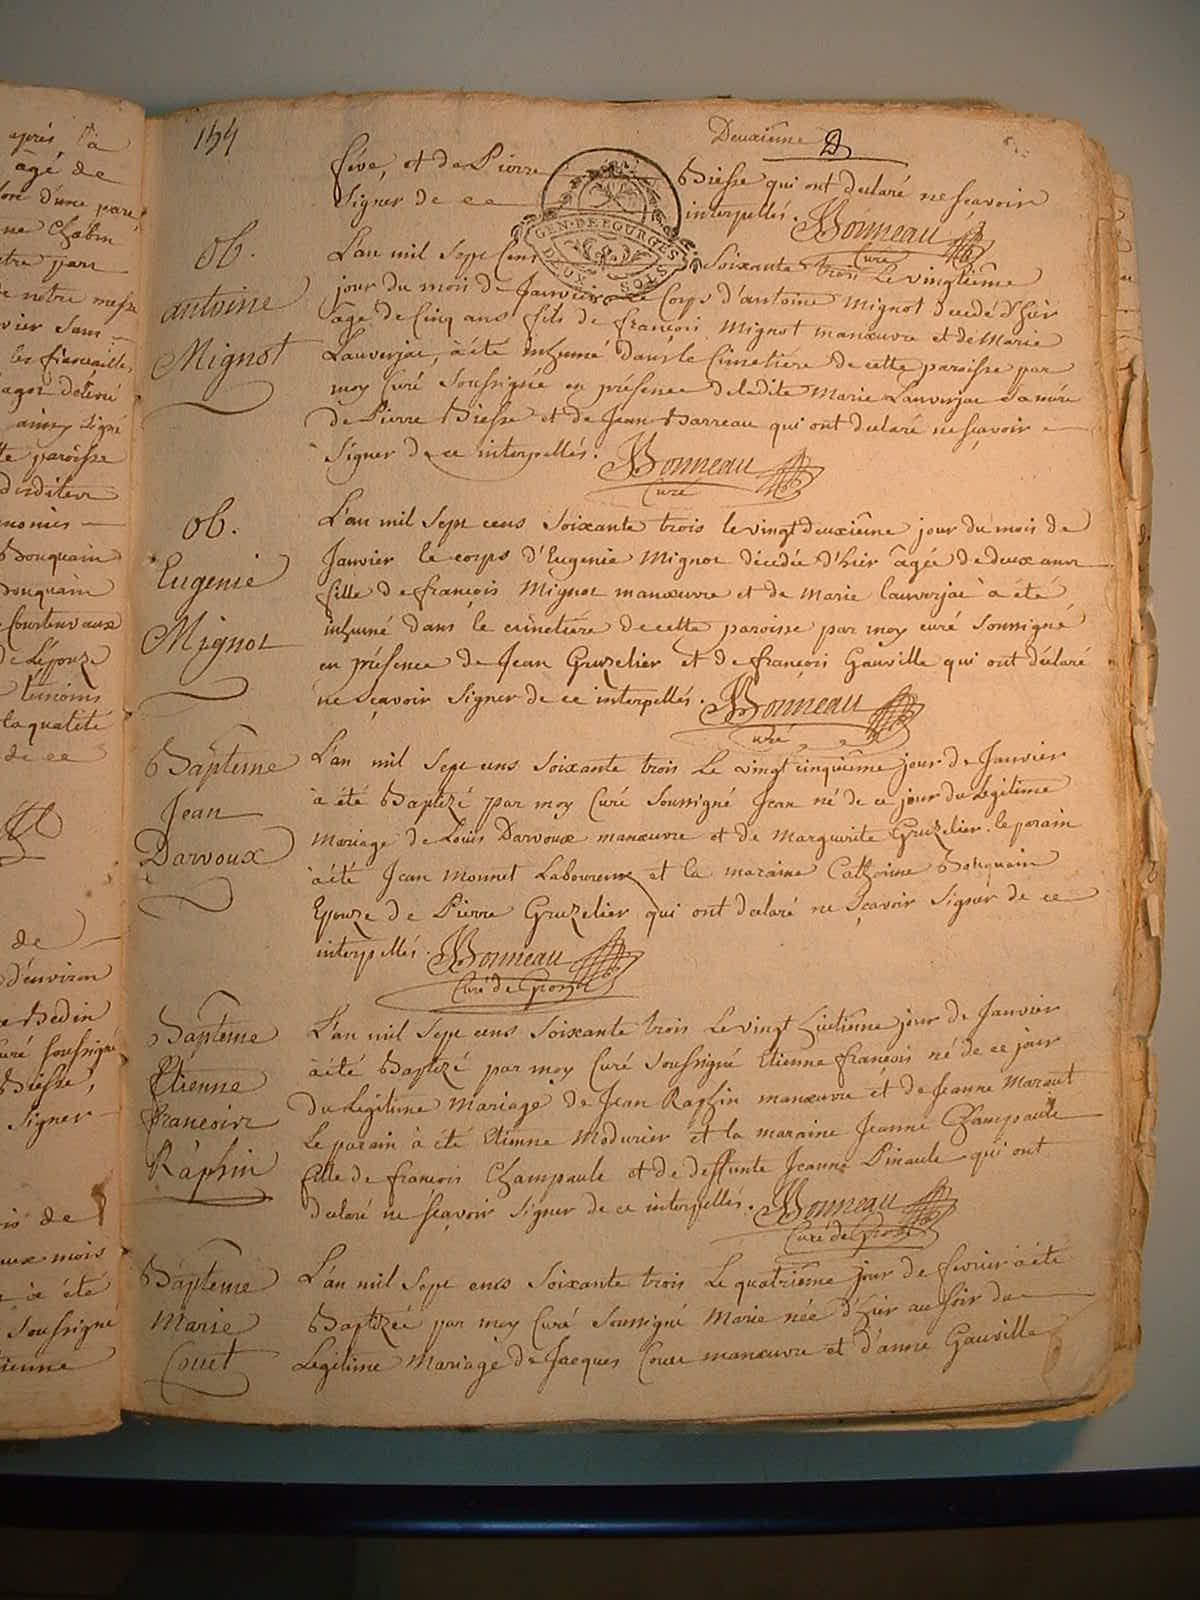 154
Deuxième
fève, et de Pierre Biesse qui ont declaré ne sçavoir
signer de ce interpellés. Bonneau
Curé
GEN·DE BOURGES
DEUX SOLS
ob.
antoine
Mignot
L'an mil sept Cens Soixante trois Le vingtieme
jour du mois de Janvier Le Corps d'antoine Mignot decedé d'hier
âge de Cinq ans fils de françois Mignot manœuvre et de Marie
Lauverjac, à été inhumé dans le Cimetiere de cette paroisse par
moy Curé Soussignée en présence de ladite Marie Lauverjac Sa mére
de Pierre Biesse et de Jean Barreau qui ont declaré ne sçavoir
Signer de ce interpellés. Bonneau
Curé
ob.
Eugenie
Mignot
L'an mil Sept cens Soixante trois le vingt deuxième jour du mois de
Janvier le corps d'Eugenie Mignot décedée d'hier âgée de deux ans
fille de françois Mignot manœuvre et de Marie lauverjac à été
inhumé dans le cimetière de cette paroisse par moy curé soussigné
en présence de Jean Gruzelier et de françois Gauville qui ont déclaré
ne sçavoir signer de ce interpellés. Bonneau
curé
Bapteme
Jean
Darvoux
L'an mil Sept cens Soixante trois Le vingt cinquième jour de Janvier
à été Baptizé par moy Curé Soussigné Jean né de ce jour du Légitime
Mariage de Louis Darvoux manœuvre et de Marguerite Gruzelier. le parain
à été Jean Monnet Laboureur et la maraine Catherine Bouquain
Epouze de Pierre Gruzelier qui ont declaré ne sçavoir signer de ce
interpellés. Bonneau
Curé de
Bapteme
Etienne
francois
Raphin
L'an mil Sept cens Soixante trois Le vingt huitième jour de Janvier
à été Baptizé par moy Curé Soussigné Etienne françois né de ce jour
du Légitime Mariage de Jean Raphin manœuvre et de Jeanne Maraut
Le parain à été Etienne Modurier et la maraine Jeanne Champault
fille de françois Champault et de deffunte Jeanne Pinault qui ont
declaré ne sçavoir signer de ce interpellés. Bonneau
Curé de
Bapteme
Marie
Couet
L'an mil Sept cens Soixante trois Le quatrième jour de fevrier à été
Baptizée par moy Curé Soussigné Marie née d'hier au soir du
Legitime Mariage de Jacques Couet manœuvre et d'anne Gauville